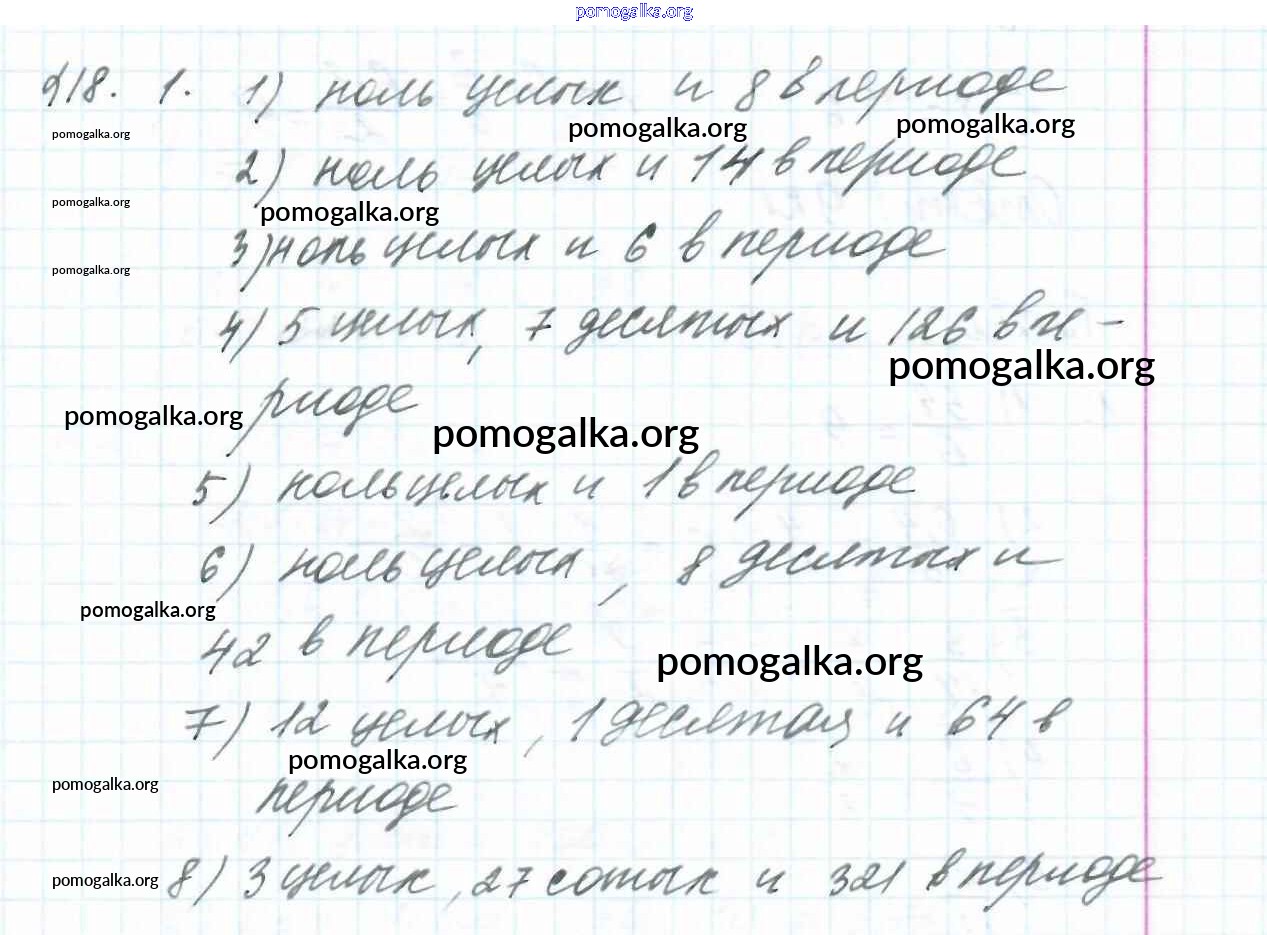 pomogalka.org
§18. 1. 1) ноль целых и 8 в периоде
pomogalka.org pomogalka.org pomogalka.org
2) ноль целых и 14 в периоде
pomogalka.org pomogalka.org
3) ноль целых и 6 в периоде
pomogalka.org
4) 5 целых, 7 десятых и 126 в пе-
pomogalka.org
риоде
pomogalka.org pomogalka.org
5) ноль целых и 1 в периоде
6) ноль целых, 8 десятых и
pomogalka.org
42 в периоде
pomogalka.org
7) 12 целых, 1 десятая и 64 в
pomogalka.org
pomogalka.org
периоде
8) 3 целых, 27 сотых и 321 в периоде
pomogalka.org